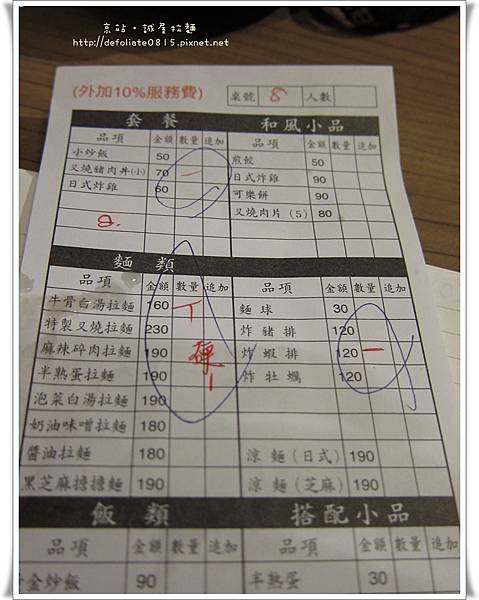 京站・誠屋拉麵
http://defoliate0815.pixnet.net
(外加10%服務費) 桌號 8 人數
套餐 和風小品
品項 金額 數量 追加 品項 金額 數量 追加
小炒飯 50 煎餃 50
叉燒豬肉丼(小) 70 一 日式炸雞 90
日式炸雞 60 可樂餅 90
叉燒肉片 (5) 80
麵類
品項 金額 數量 追加 品項 金額 數量 追加
牛骨白湯拉麵 160 麵球 30
特製叉燒拉麵 230 炸豬排 120
麻辣碎肉拉麵 190 硬 炸蝦排 120 一
半熟蛋拉麵 190 炸牡蠣 120
泡菜白湯拉麵 190
奶油味噌拉麵 180
醬油拉麵 180 涼麵(日式) 190
黑芝麻擔擔麵 190 涼麵(芝麻) 190
飯類 搭配小品
品項 金額 數量 追加 品項 金額 數量 追加
金炒飯 90 半熟蛋 30